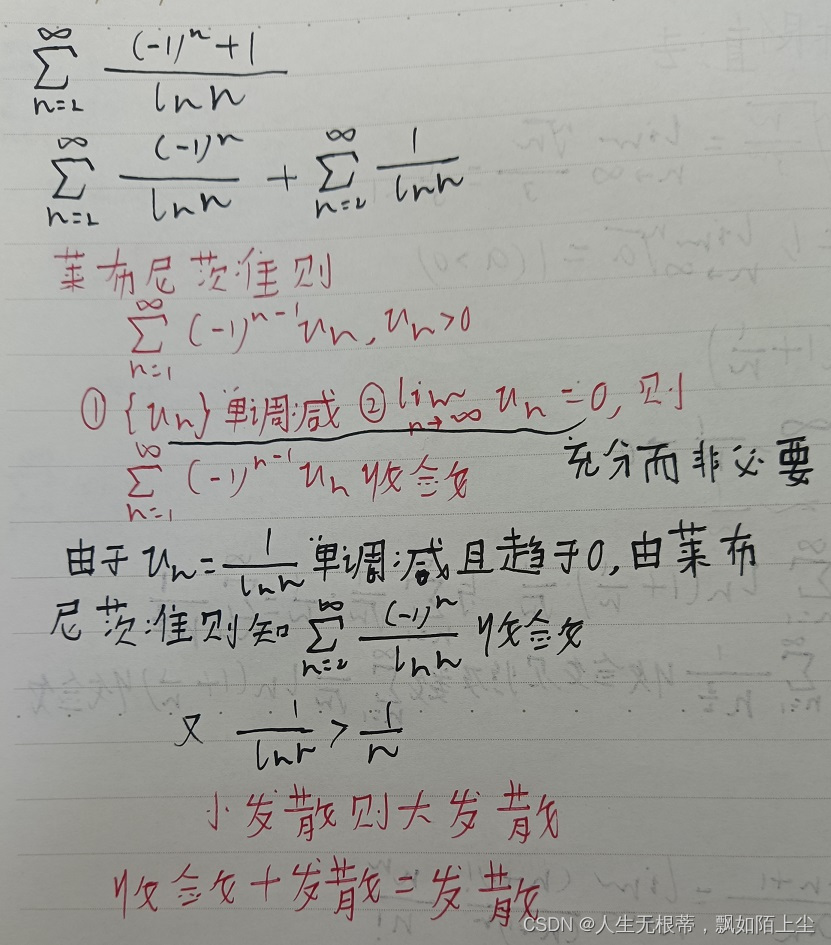 ∑_{n=2}^{∞} \frac{(-1)^n+1}{ln n}
∑_{n=2}^{∞} \frac{(-1)^n}{ln n} + ∑_{n=2}^{∞} \frac{1}{ln n}
莱布尼茨准则
∑_{n=1}^{∞} (-1)^{n-1} u_n, u_n>0
① {u_n} 单调减 ② lim_{n→∞} u_n = 0, 则
∑_{n=1}^{∞} (-1)^{n-1} u_n 收敛 充分而非必要
由于 u_n = \frac{1}{ln n} 单调减且趋于0, 由莱布
尼茨准则知 ∑_{n=2}^{∞} \frac{(-1)^n}{ln n} 收敛
又 \frac{1}{ln n} > \frac{1}{n}
小发散则大发散
收敛+发散=发散
CSDN @人生无根蒂，飘如陌上尘